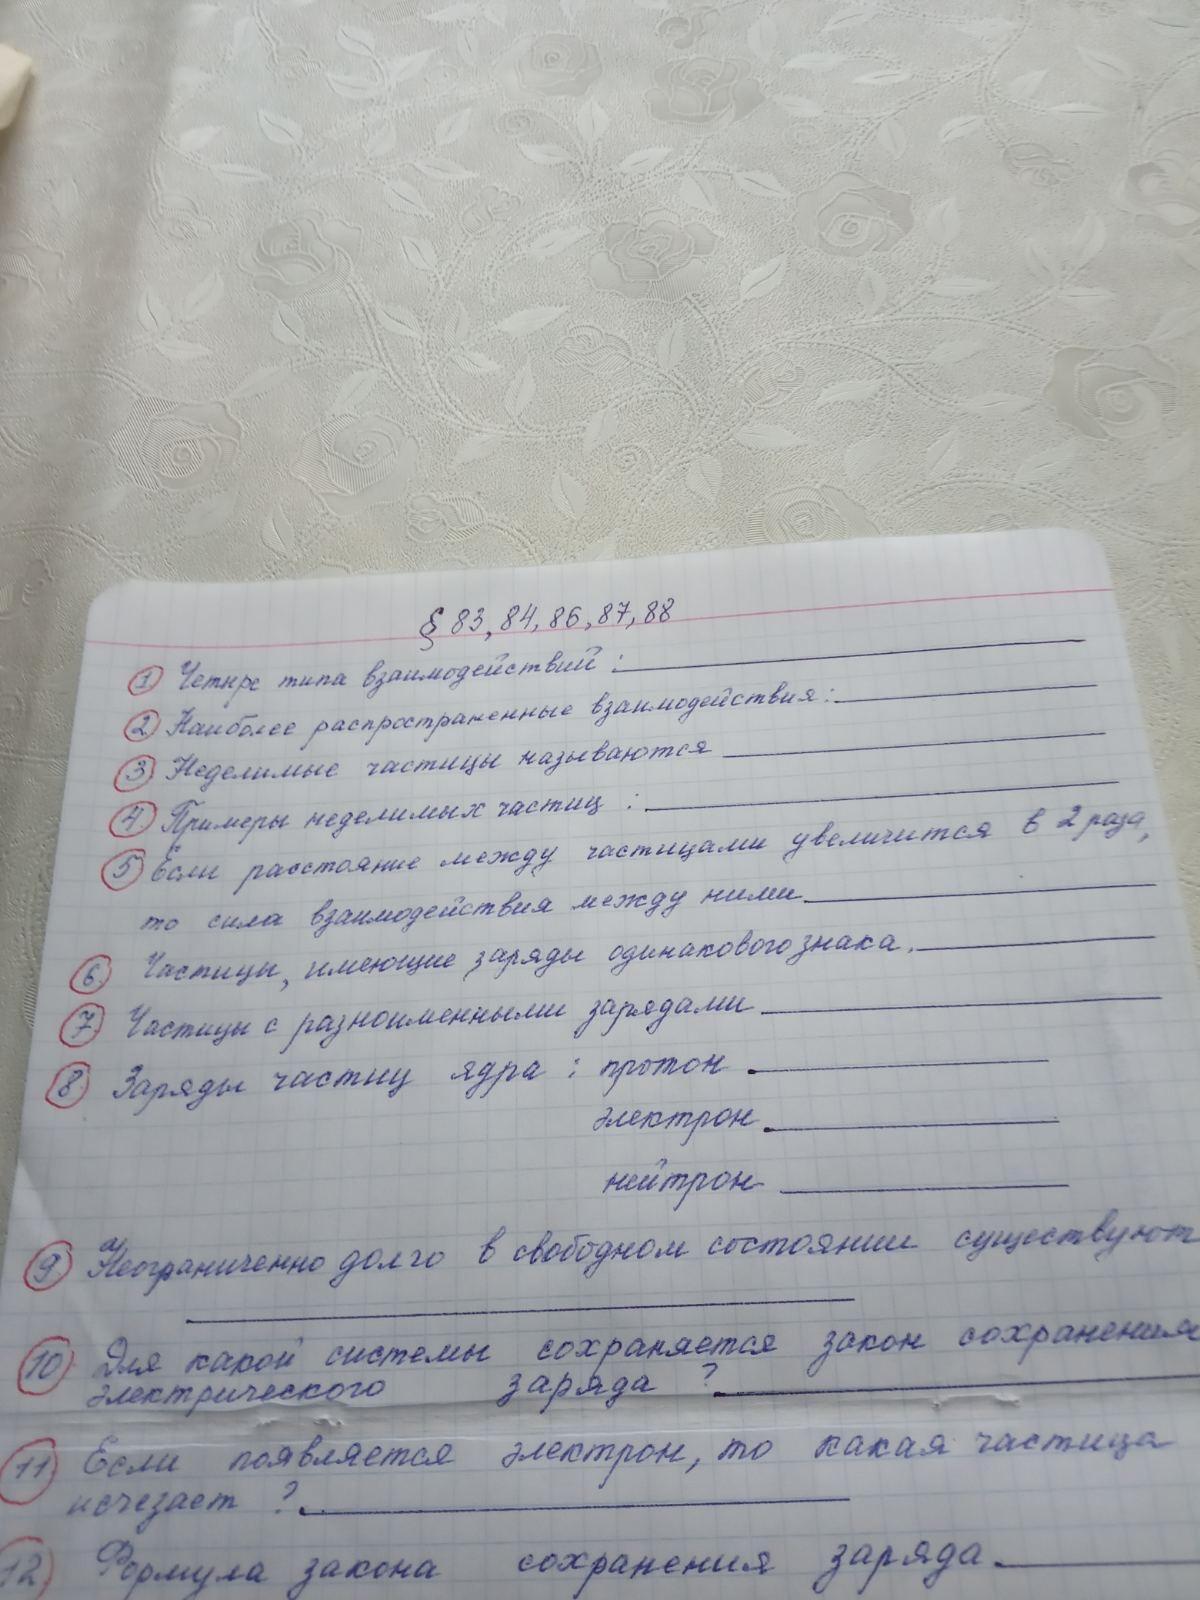 § 83, 84, 86, 87, 88
1 Четыре типа взаимодействий:
2 Наиболее распространенные взаимодействия:
3 Неделимые частицы называются
4. Примеры неделимых частиц:
5 Если расстояние между частицами увеличится в 2 раза,
то сила взаимодействия между ними
6. Частицы, имеющие заряды одинакового знака.
7. Частицы с разноименными зарядами
8. Заряды частиц ядра: протон
электрон
нейтрон
9. Неограниченно долго в свободном состоянии существуют
10. Для какой системы сохраняется закон сохранения
электрического заряда?
11 Если появляется электрон, то какая частица
исчезает?
12. Формула закона сохранения заряда